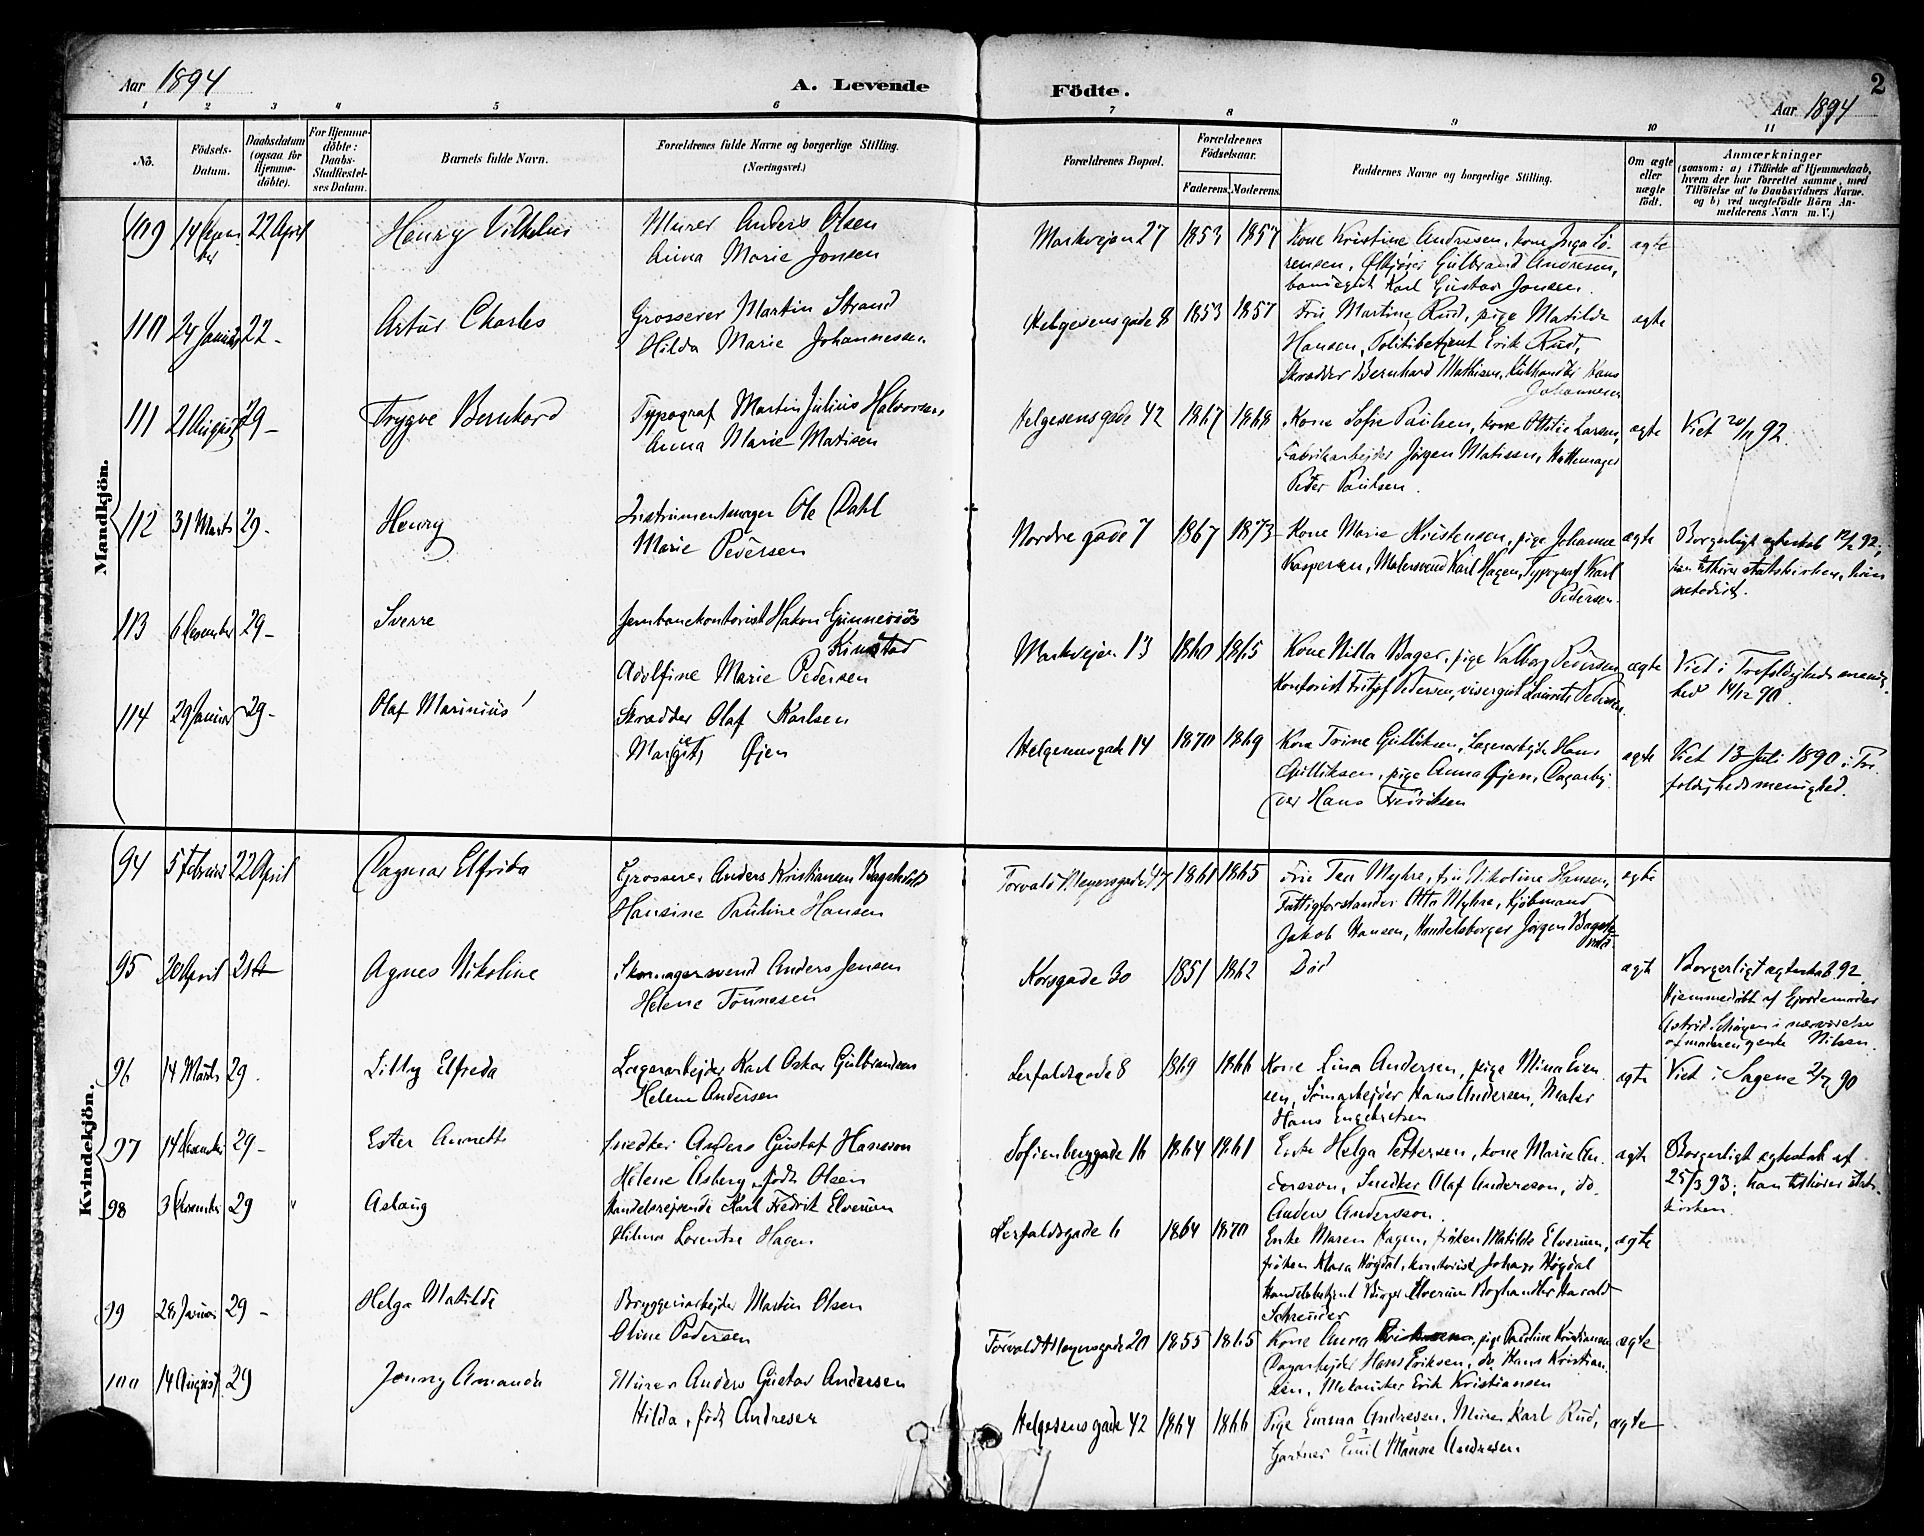 Aar 1894
A. Levende
Födte.
2
Aar 1894
1 2 3 4 5 6 7 8 9 10 11
No.
Födsels-
Datum.
Daabsdatum
(ogsaa for
Hjemme-
døbte).
For Hjemme-
døbte:
Daabs-
Stadfæstel-
ses Datum.
Barnets fulde Navn.
Forældrenes fulde Navne og borgerlige Stilling.
(Næringsvei.)
Forældrenes Bopæl.
Forældrenes
Födselsaar.
Faderens. Moderens.
Faddernes Navne og borgerlige Stilling.
Om ægte
eller
uægte
født.
Anmærkninger
(saasom: a) i Tilfælde af Hjemmedaab,
hvem der har forrettet samme, med
Tilføielse af to Daabsvidners Navne,
og b) ved uægtefødte Börn An-
melderens Navn m. V.)
Mandkjön.
109 22 April Henry Vilhelm
Murer Anders Olsen
Anna Marie Jonsen
Markvejen 27 1853 1857
Kone Kristine Andresen, kone Inga Sö-
rensen, Gulbrand Andresen,
Karl Gustav Jonsen.
ægte
110 24 Januar 22 - Artur Charles
Grosserer Martin Strand
Hilda Marie Johannessen
Helgesensgade 8 1853 1857
Fru Martine Rud, pige Matilde
Hansen, Politibetjent Erik Rud,
Skrædder Bernhard Mathisen, Kulhandler Hans
Johannesen
ægte
111 21 August 29 - Trygve Bernhard
Typograf Martin Julius Halvorsen
Anna Marie Matisen
Helgesensgade 42 1867 1868
Kone Sofie Paulsen, kone Ottilie Larsen,
Fabrikarbejder Jörgen Matisen, Hattemager
Peder Paulsen.
ægte
Viet 20/11 92.
112 31 Marts 29 - Henry
Instrumentmager Ole Dahl
Marie Pedersen
Nordregade 7 1867 1873
Kone Marie Kristensen, pige Johanne
Kaspersen, Malersvend Karl Hagen, Typograf Karl
Pedersen.
ægte
Borgerligt ægteskab 12/2 92;
han tilhörer statskirken, hun
metodist.
113 6 Desember 29 - Sverre
Jernbanekontorist Hakon Gunnerius
Kinstad
Adolfine Marie Pedersen
Markvejen 13 1860 1865
Kone Nilla Bager, pige Valborg Pedersen
Kontorist Fritjof Pedersen, visergut Laurits Pedersen.
ægte
Viet i Trefoldigheds menig-
hed 14/12 90.
114 29 Januar 29 - Olaf Marinius
Skrædder Olaf Karlsen
Margit Øjen
Helgesensgade 14 1870 1869
Kone Trine Gulliksen, Lagerarbejder Hans
Gulliksen, pige Anna Øjen, Dagarbej-
der Hans Fredriksen
ægte
Viet 13 Juli 1890 i Tre-
foldighedsmenighed.
Kvindekjön.
94 5 Februar 22 April Dagmar Elfrida
Grosserer Anders Kristiansen
Hansine Pauline Hansen
Torvald Meyersgade 47 1861 1865
Fru Tea Myhre, fru Nikoline Hansen,
Fattigforstander Otto Myhre, Kjöbmand
Jakob Hansen, Handelsborger Jörgen
ægte
95 20 April 21 Agnes Nikoline
Skomagersvend Anders Jensen
Helene Tönnesen
Korsgade 30 1851 1862
Död
ægte
Borgerligt ægteskab 92.
Hjemmedöbt af Gjordemoder
Astrid i nærværelse
af moderen, gente Nilsen.
96 14 Marts 29. Lilly Elfreda
Lagerarbejder Karl Oskar Gulbrandsen
Helene Andersen
Lerfaldsgade 8 1869 1866
Kone Lina Andersen, pige Mina Lien-
sen, Jernarbejder Hans Andersen, Maler
Hans Engebretsen
ægte
Viet i Sagene 2/7 90
97 14 Desember 29 - Ester Annette
Snedker Anders Gustaf Hansson
Helene Asberg, født Olsen
Sofienberggade 16 1864 1861
Enke Helga Pettersen, kone Marie An-
dersson, Snedker Olaf Andersson, do.
Anders Andersson.
ægte
Borgerligt ægteskab af
25/3 93; han tilhörer stats-
kirken.
98 3 Desember 29 " Aslaug
Handelsrejsende Karl Fredrik Elverum
Hilma Lorentse Hagen
Lerfaldsgade 6 1864 1870
Enke Maren Hagen, fröken Matilde Elverum,
fröken Klara Högdal, kontorist Johan Högdal
Handelsbetjent Birger Elverum Boghandler Harald
Schreuder
ægte
99 28 Januar 29 - Helga Matilde
Bryggeriarbejder Martin Olsen
Oline Pedersen
Torvald Meyersgade 20 1855 1865
Kone Anna Eriksen, pige Pauline Kristiansen
Dagarbejder Hans Eriksen, do. Hans Kristian-
sen, Mekaniker Erik Kristiansen
ægte
100 14 August 29 Jenny Amanda
Murer Anders Gustav Andersen
Hilda, født Andresen
Helgesensgade 42 1864 1866
Pige Emma Andresen, Murer Karl Rud,
Gartner Emil Andresen
ægte